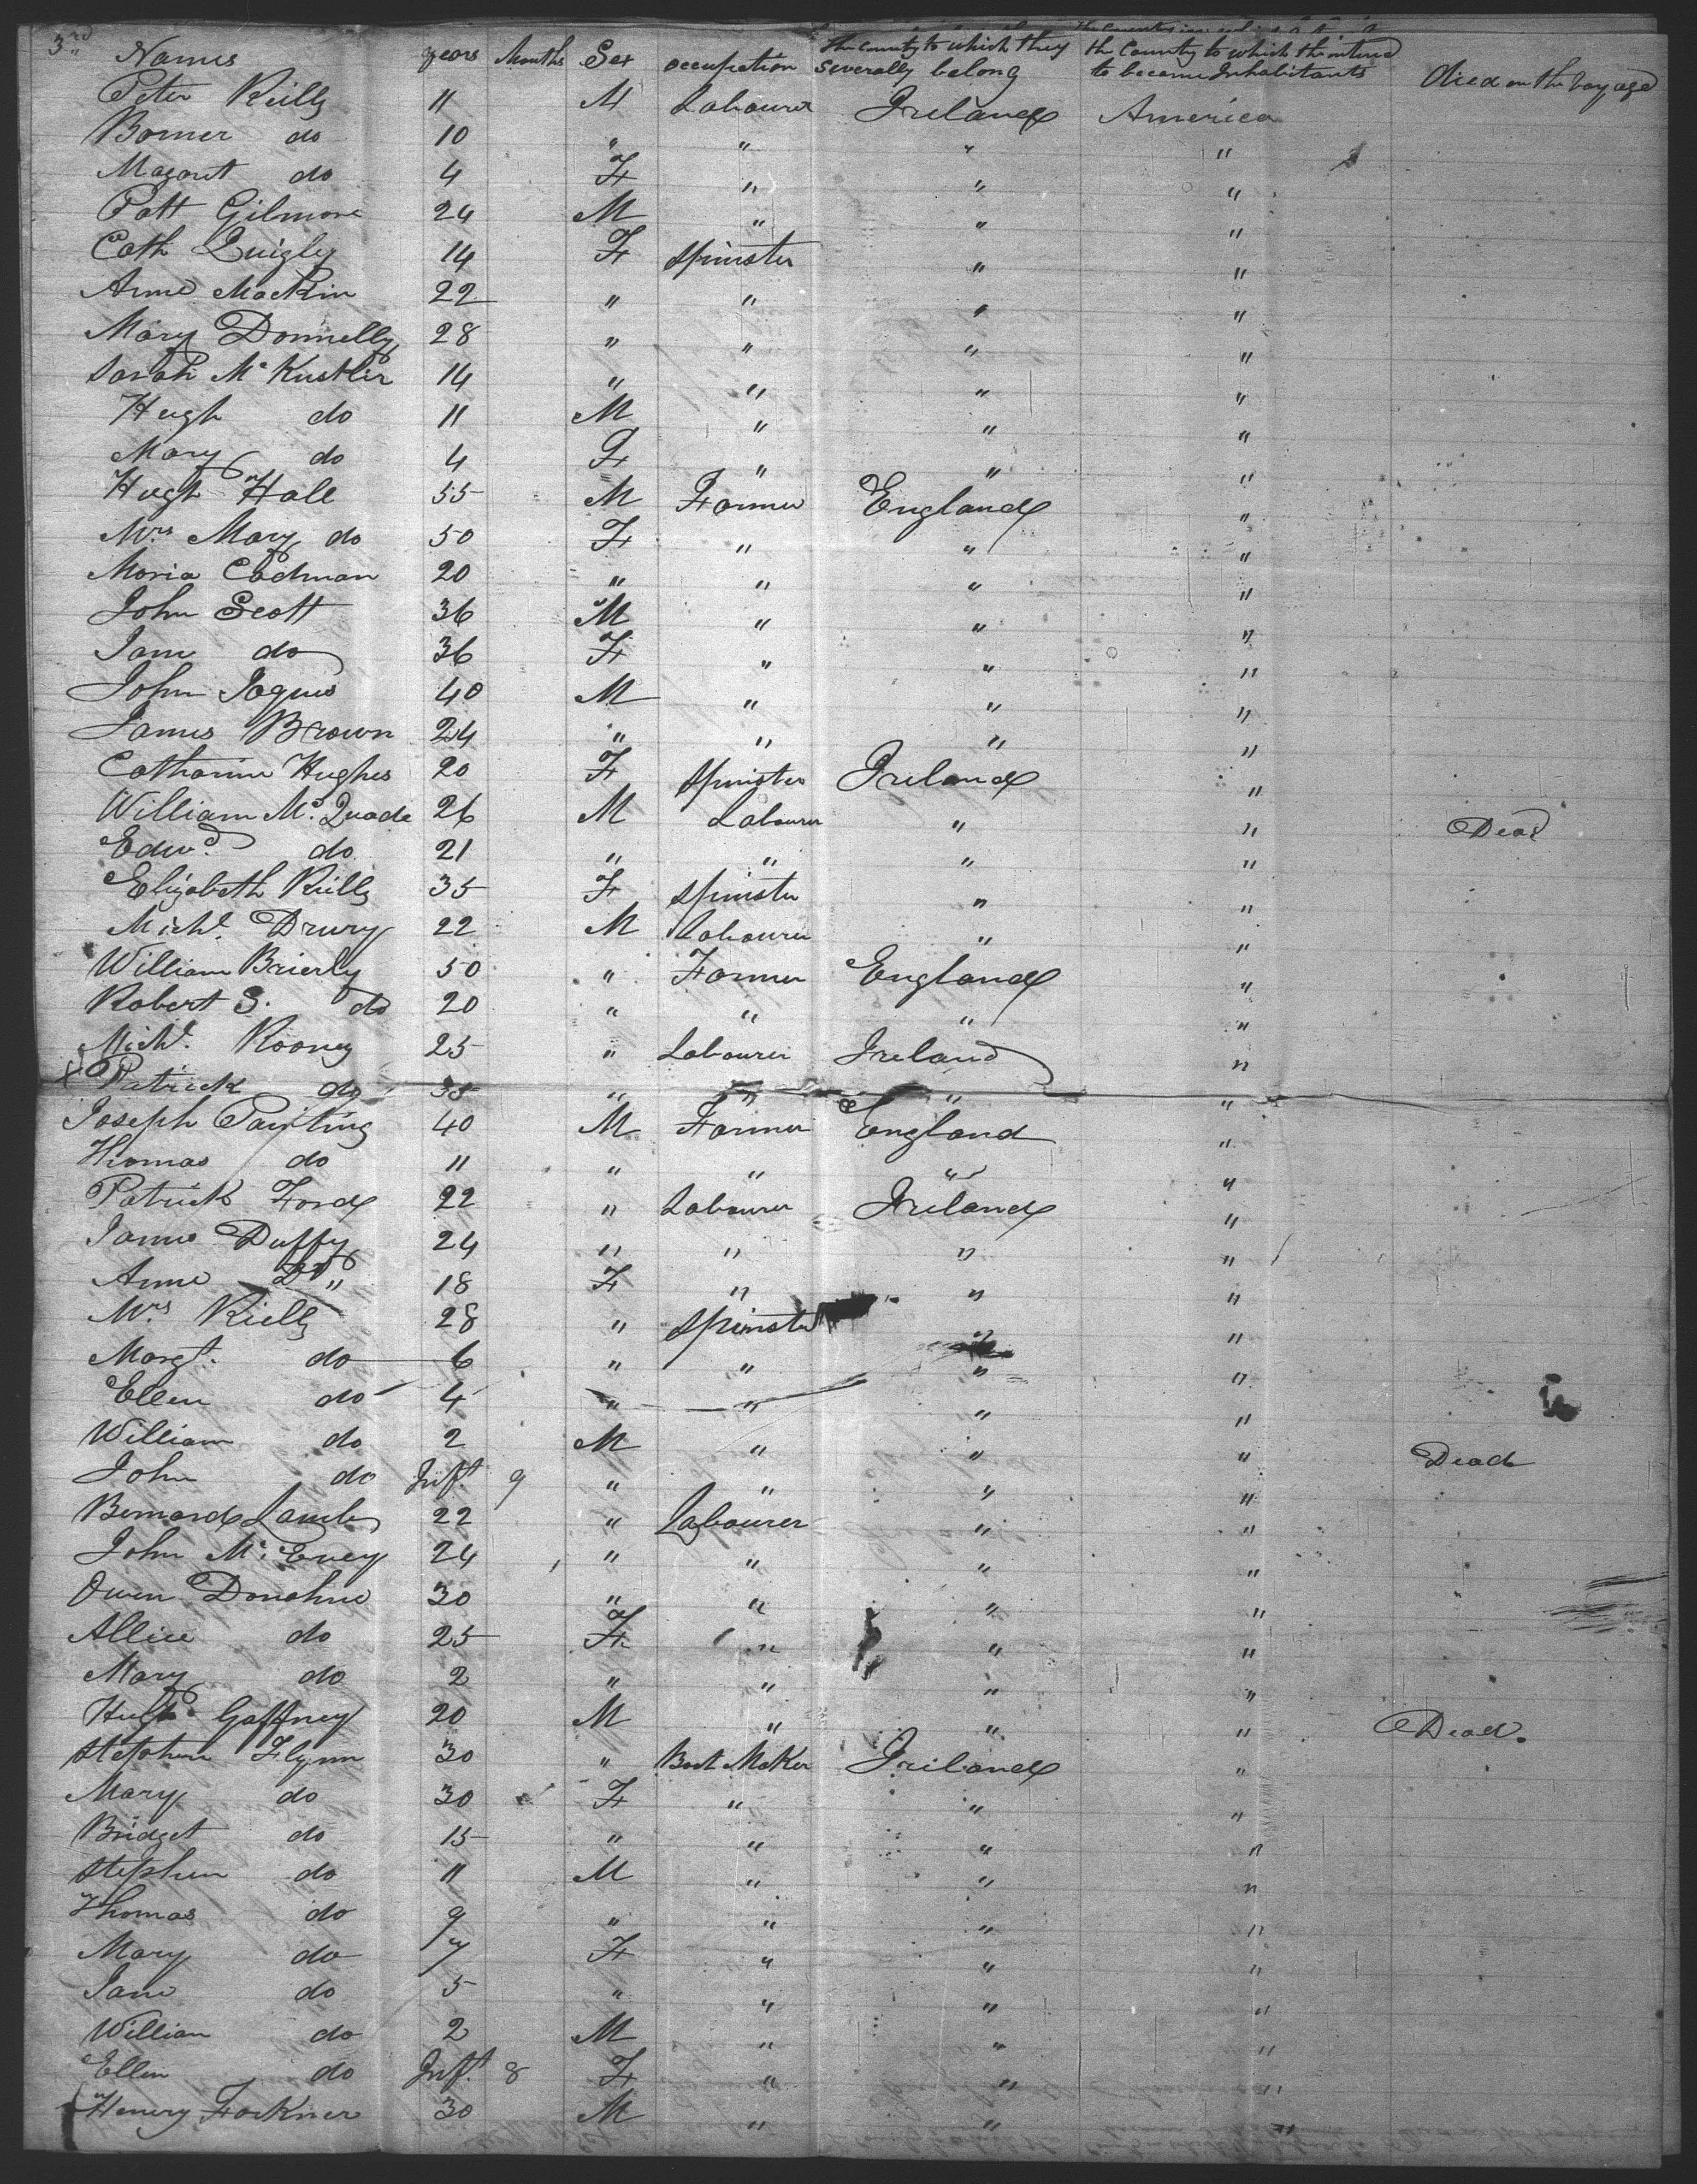 3rd
Names years Months Sex occupation The Country to which they severally belong the Country to which th intend to become Inhabitants died on the voyage
Peter Reilly 11 M Labourer Ireland America
do 10 " " " "
Magaret do 4 F " " "
Patt Gilmore 24 M " " "
Cath Quigley 14 F Spinster " "
Anne Mackin 22 " " " "
Mary Donnelly 28 " " " "
Sarah 14 " " " "
Hugh do 11 M " " "
Mary do 4 F " " "
Hugh Hall 55 M Farmer England "
Mrs Mary do 50 F " " "
Maria Cadman 20 " " " "
John Scott 36 M " " "
Jane do 36 F " " "
John Jaques 40 M " " "
James Brown 24 " " " "
Catharine Hughes 20 F Spinster Ireland "
William Mc Quade 26 M Labourer " " Dead
Edwd. do 21 " " " "
Elizabeth Reilly 35 F Spinster " "
Michl. Drury 22 M Labourer " "
William Brierly 50 " Farmer England "
Robert S. do 20 " " " "
Michl. Rooney 25 " Labourer Ireland "
Patrick do 35 " " " "
Joseph 40 M Farmer England "
Thomas do 11 " " " "
Patrick Ford 22 " Labourer Ireland "
James Duffy 24 " " " "
Anne Do " 18 F " " "
Mrs Rielly 28 " Spinster " "
Margt. do 6 " " " "
Ellen do 4 " " " "
William do 2 M " " " Dead
John do Inft. 9 " " " "
Bernard Lamb 22 " Labourer " "
John Mc. Evey 24 " " " "
Owen Donohue 30 " " " "
Allice do 25 F " " "
Mary do 2 " " " "
Hugh Gaffney 20 M " " " Dead.
Stephen Flynn 30 " Boot Maker Ireland "
Mary do 30 F " " "
Bridget do 15 " " " "
Stephen do 11 M " " "
Thomas do 9 " " " "
Mary do 7 F " " "
Jane do 5 " " " "
William do 2 M " " "
Ellen do Inft. 8 F " " "
Henery Forkner 30 M " " "